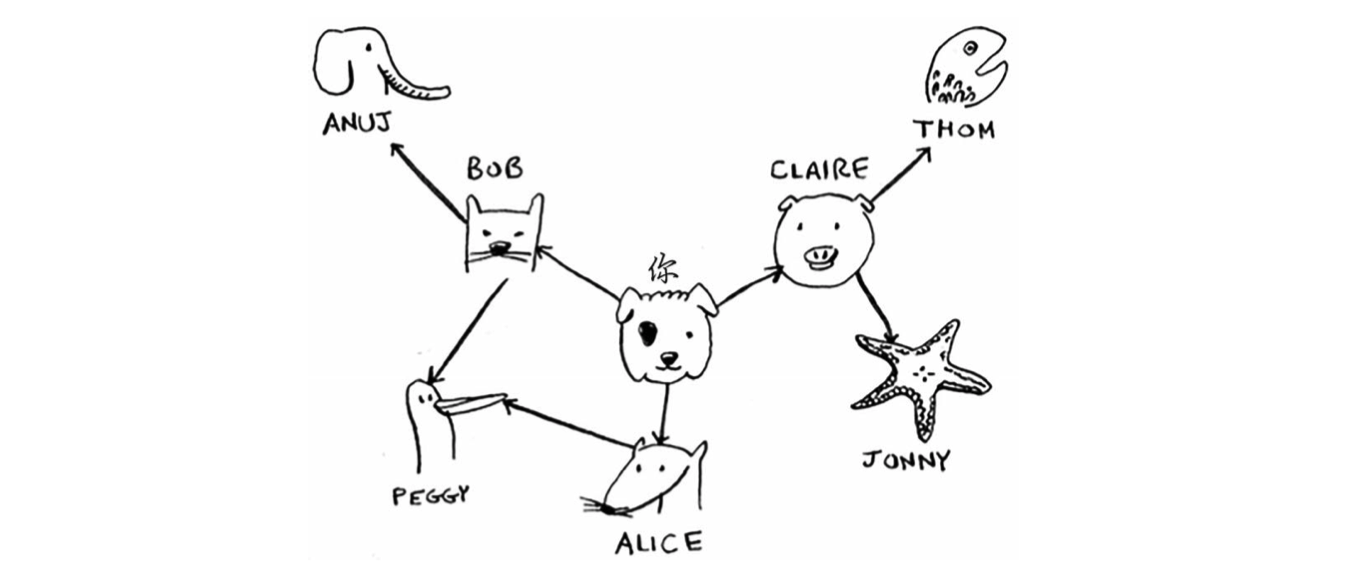 ANUJ
THOM
BOB
CLAIRE
你
JONNY
PEGGY
ALICE